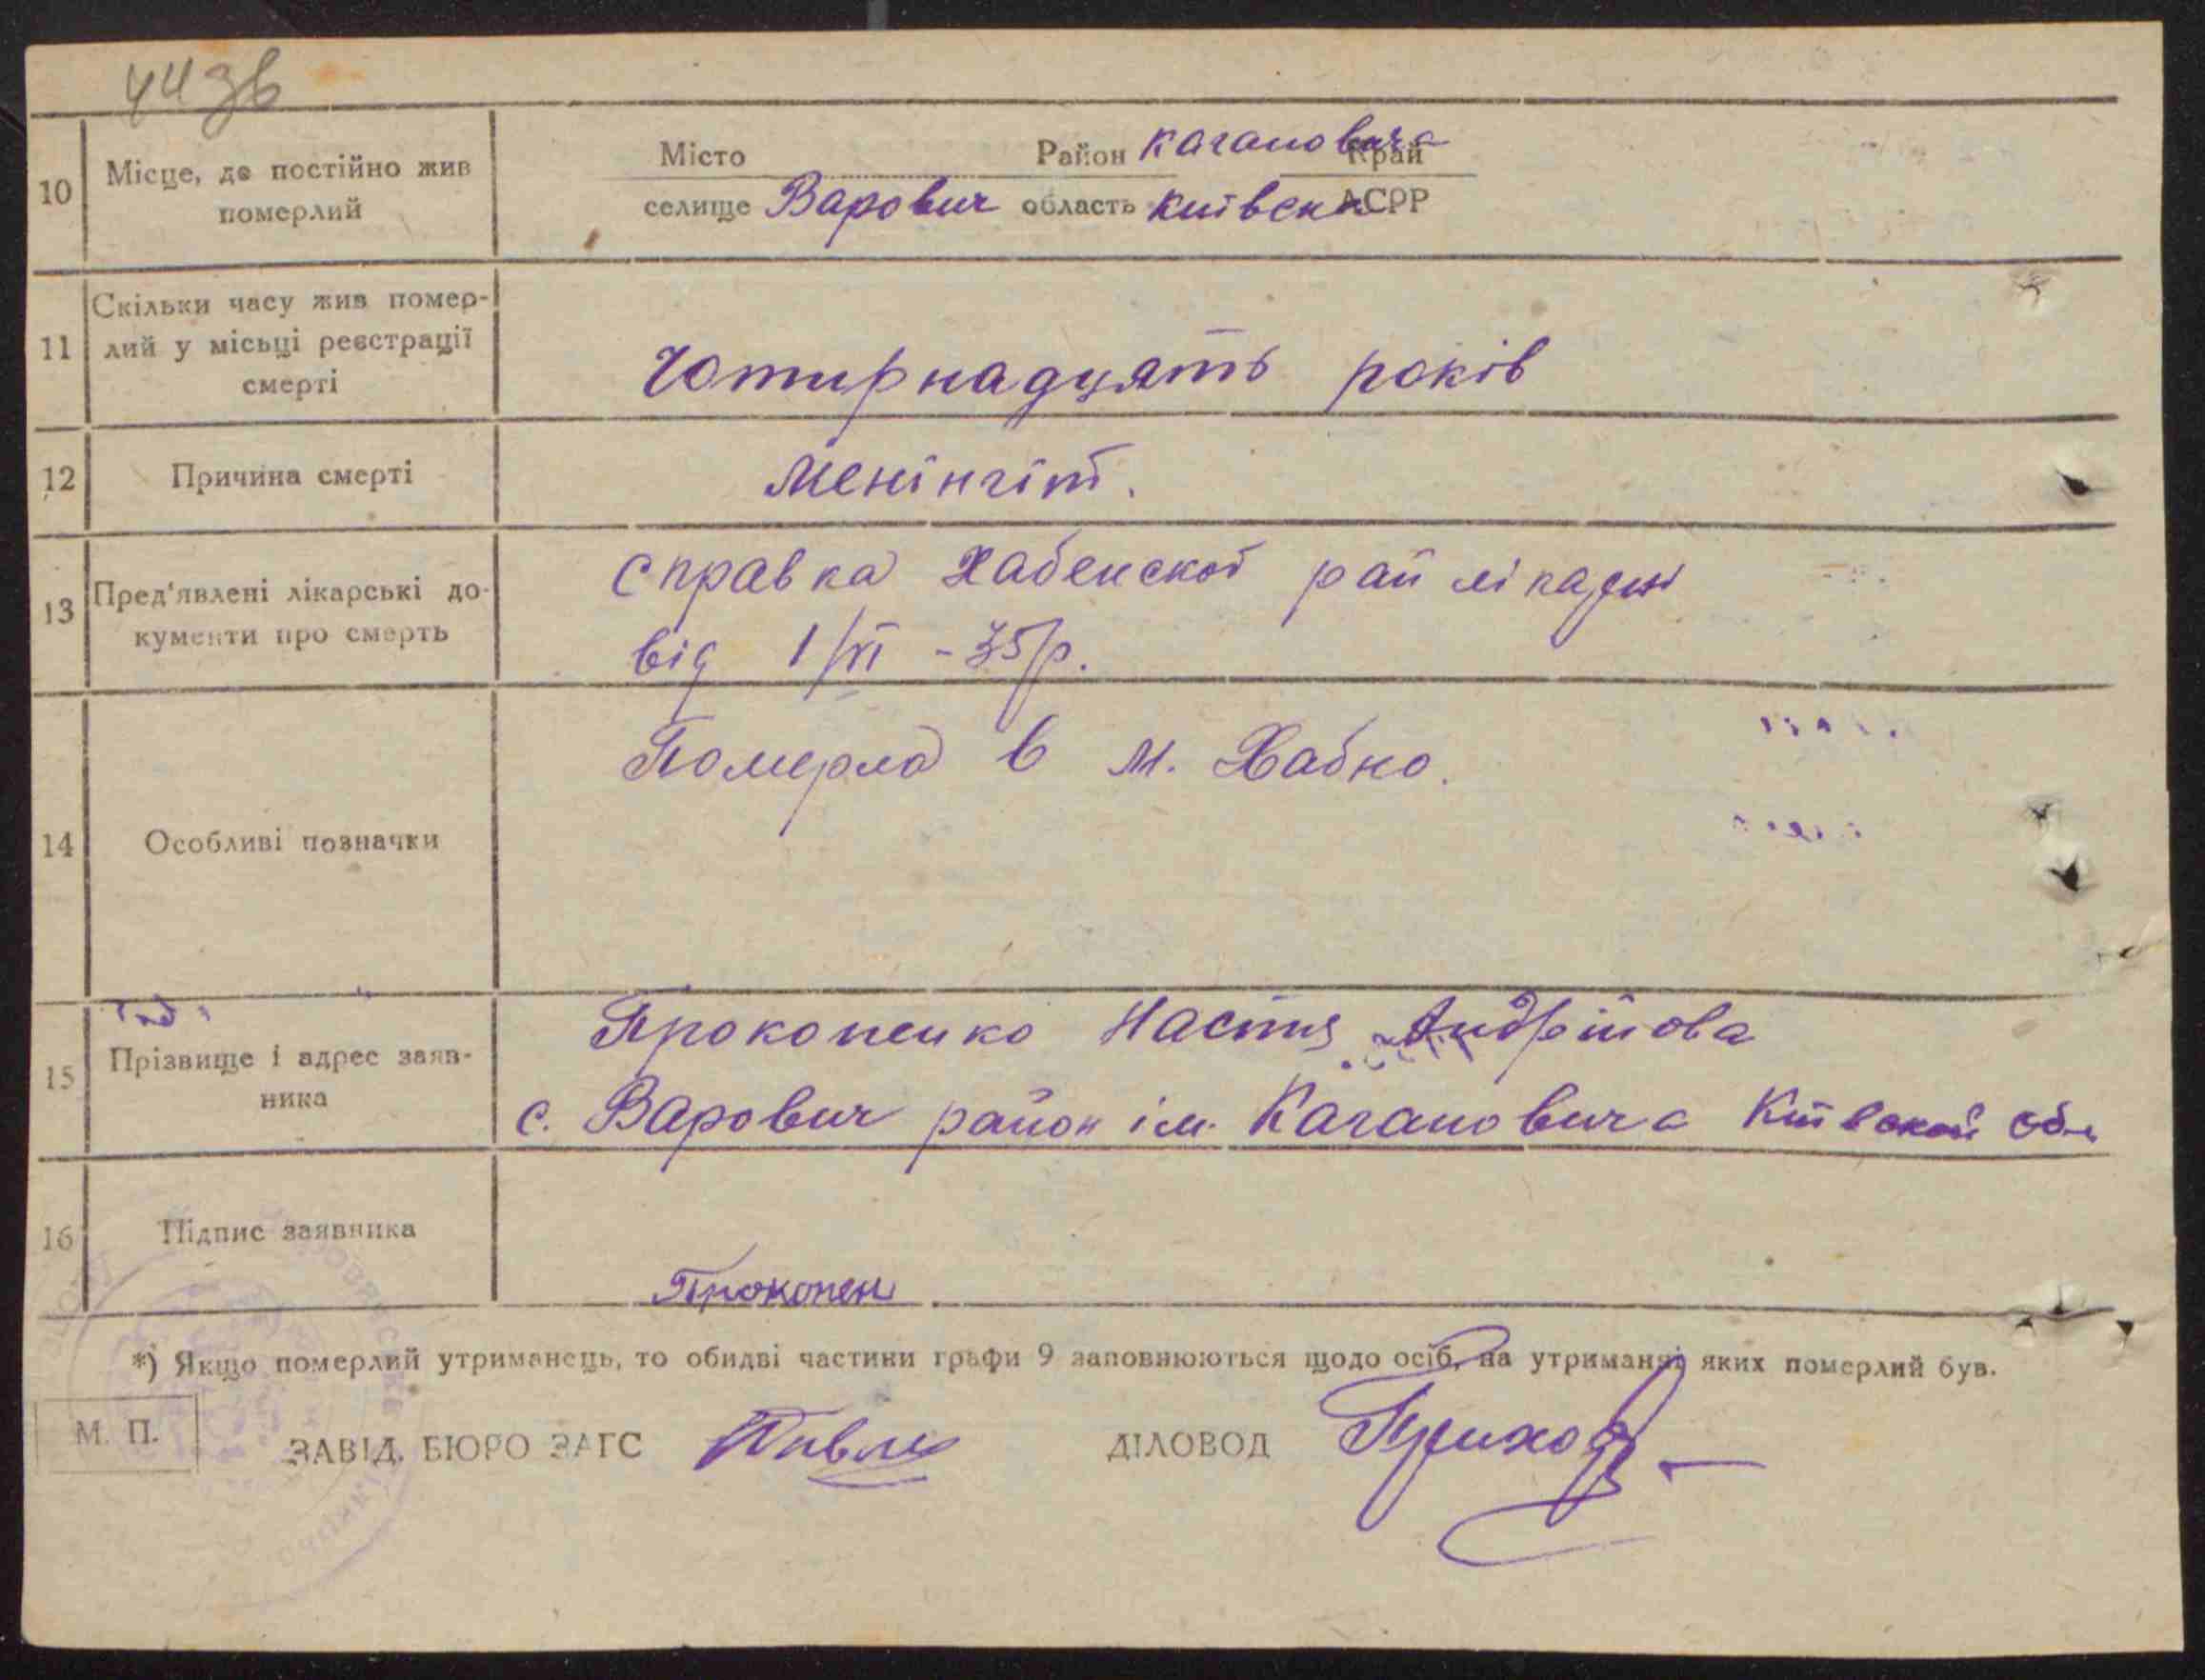 44зв
10 Місце, де постійно жив померлий
Місто Район Кагановича Край
селище Варович область Київська АСРР
11 Скільки часу жив померлий у місьці реєстрації смерті
Чотирнадцять років
12 Причина смерті
Менінгіт.
13 Пред'явлені лікарські документи про смерть
Справка Хабенскої рай лікарні
від 1/VI - 35 р.
14 Особливі позначки
Померла в м. Хабно.
15 Прізвище і адрес заявника
Прокопенко Настя Андрійова
с. Варович район ім. Кагановича Київской обл
16 Підпис заявника
Прокопен
*) Якщо померлий утриманець, то обидві частини графи 9 заповнюються щодо осіб, на утриманні яких померлий був.
М. П.
ЗАВІД. БЮРО ЗАГС ДІЛОВОД